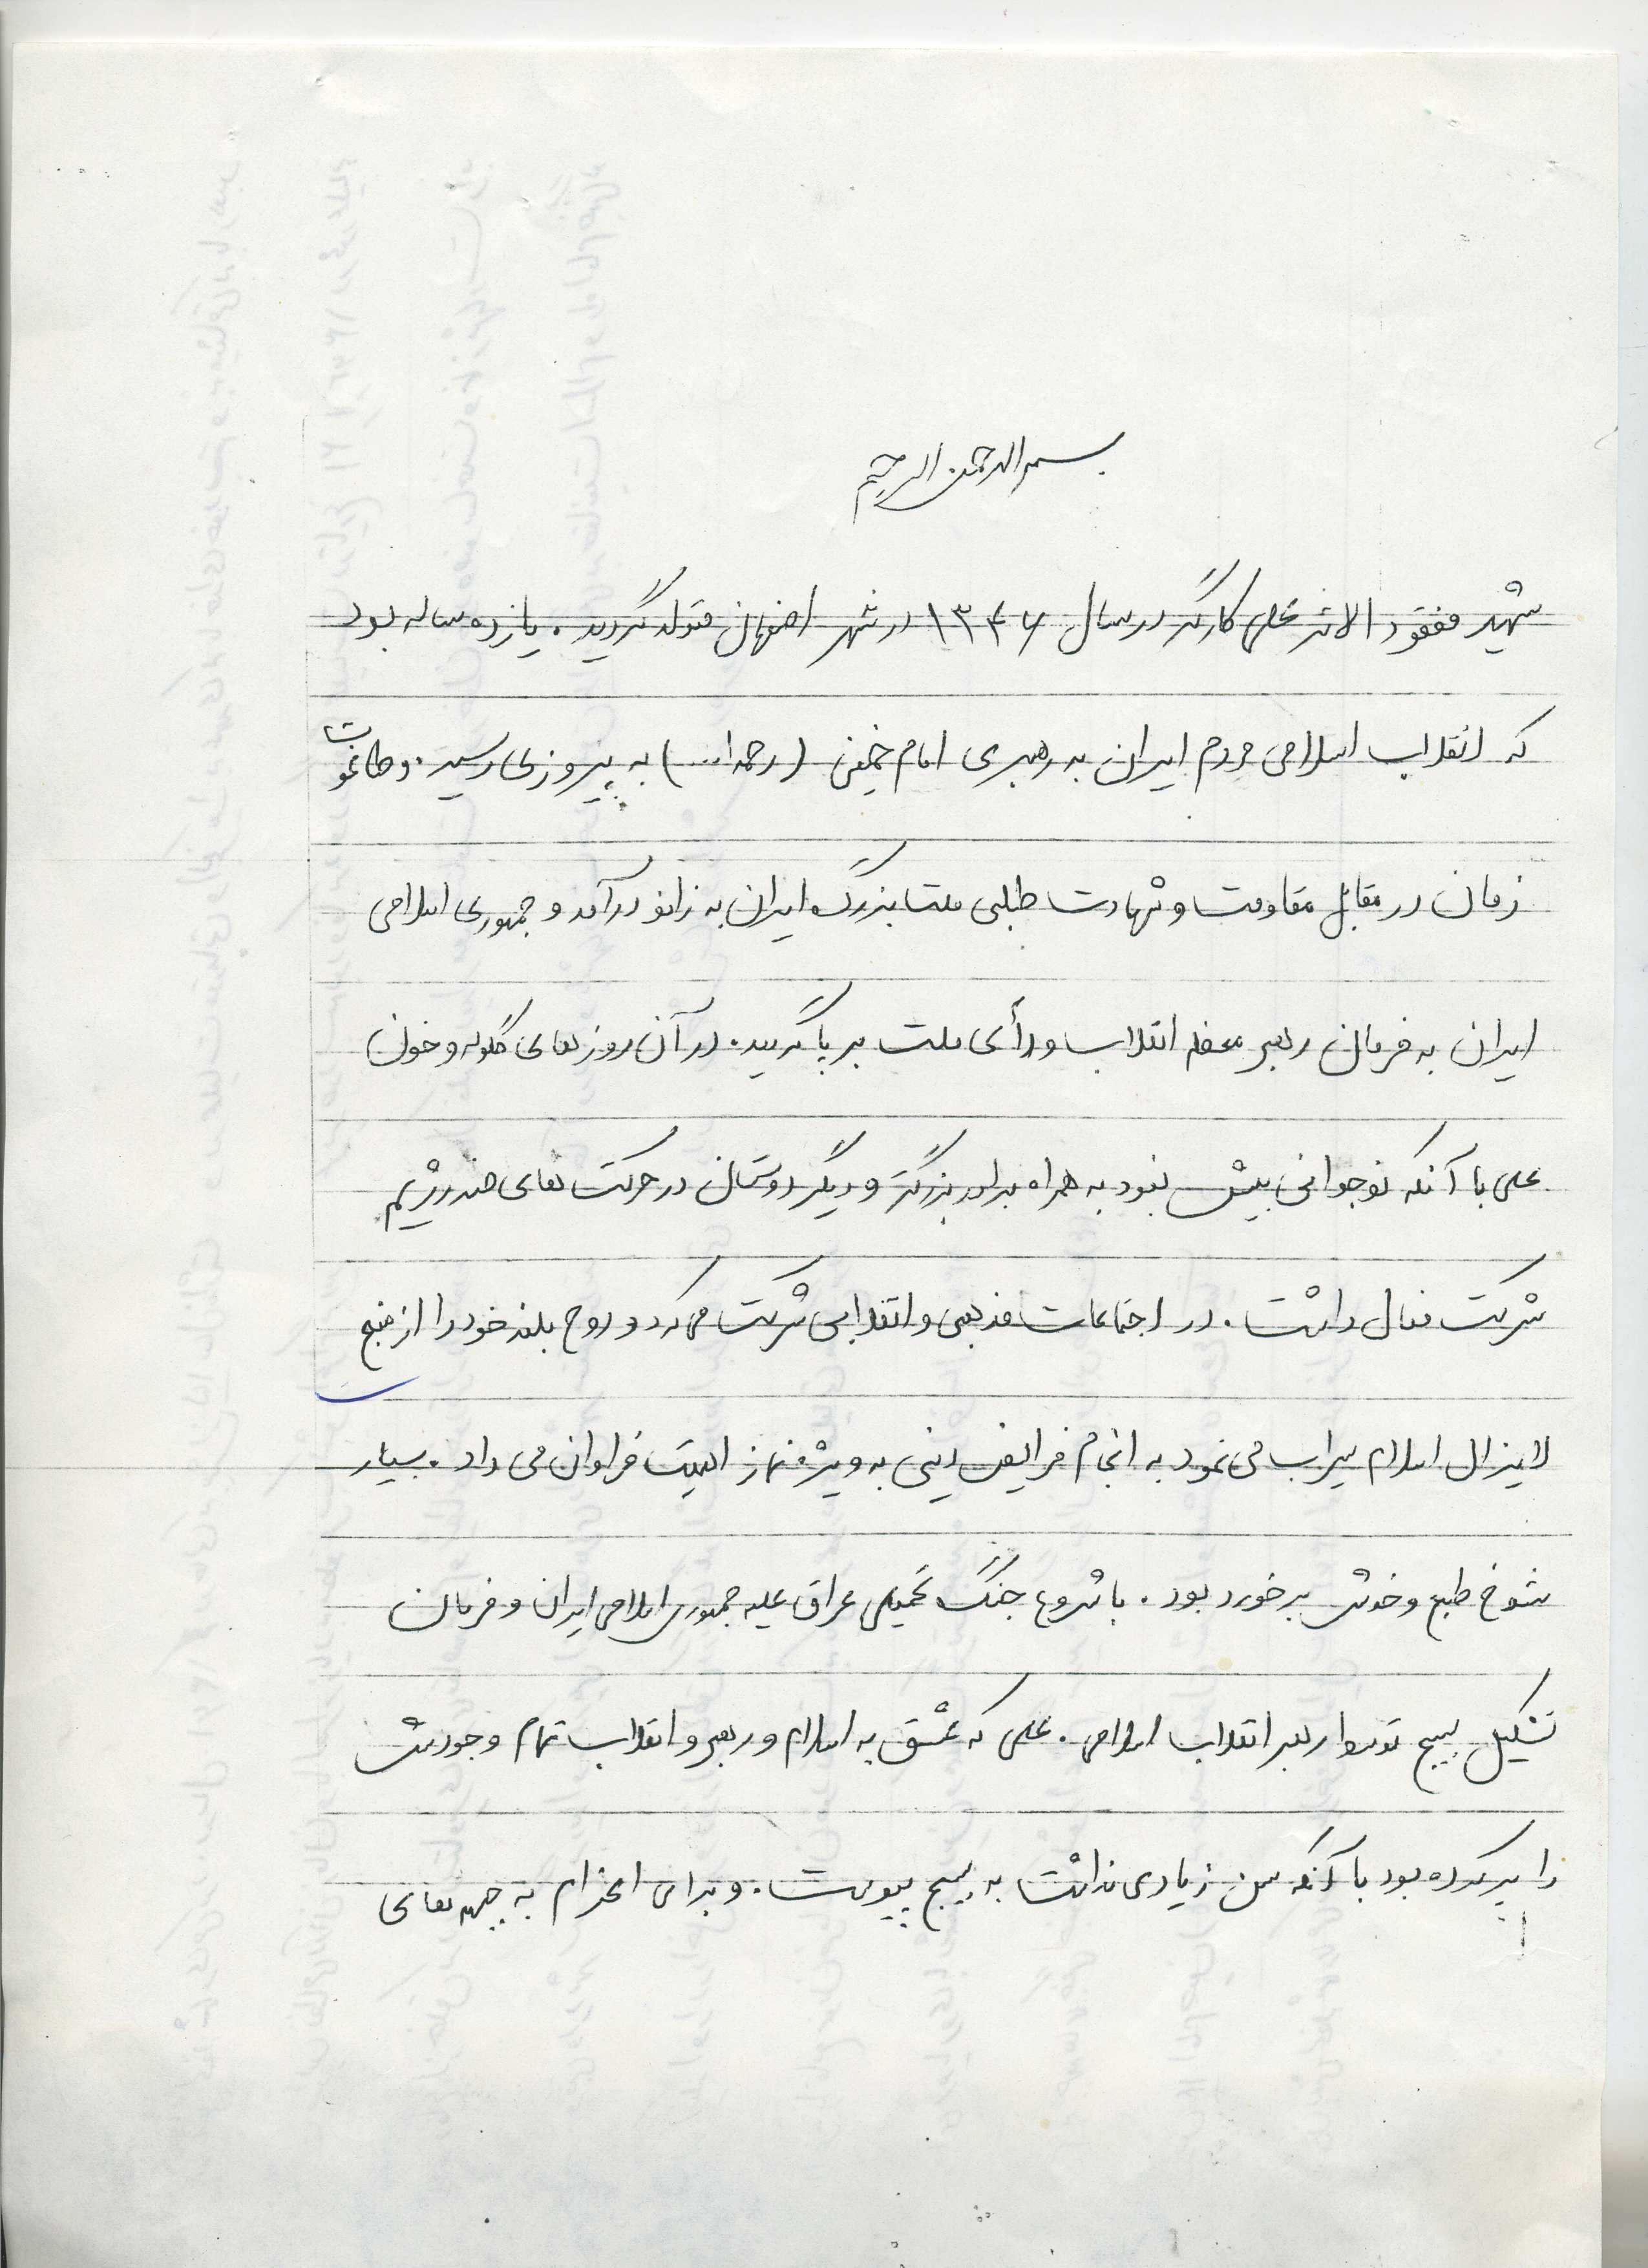 بسم الله الرحمن الرحیم
شهید مفقود الاثر علی کارگر در سال ۱۳۴۶ در شهر اصفهان متولد گردید. یازده ساله بود
که انقلاب اسلامی مردم ایران به رهبری امام خمینی (رحمه ا...) به پیروزی رسید. و طاغوت
زمان در مقابل مقاومت و شهادت طلبی ملت بزرگ ایران به زانو درآمد و جمهوری اسلامی
ایران به فرمان رهبر معظم انقلاب و رأی ملت بر پا گردید. در آن روزهای گلوله و خون
علی با آنکه نوجوانی بیش نبود به همراه برادر بزرگتر و دیگر دوستان در حرکت های ضد رژیم
شرکت فعال داشت. در اجتماعات مذهبی و انقلابی شرکت می کرد و روح بلند خود را از منبع
لایزال اسلام سیراب می نمود به انجام فرایض دینی به ویژه نماز اهمیت فراوان می داد. بسیار
شوخ طبع و خوش برخورد بود. با شروع جنگ تحمیلی عراق علیه جمهوری اسلامی ایران و فرمان
تشکیل بسیج توسط رهبر انقلاب اسلامی. علی که عشق به اسلام و رهبر و انقلاب تمام وجودش
را پر کرده بود با آنکه سن زیادی نداشت به بسیج پیوست. و برای اعزام به جبهه های